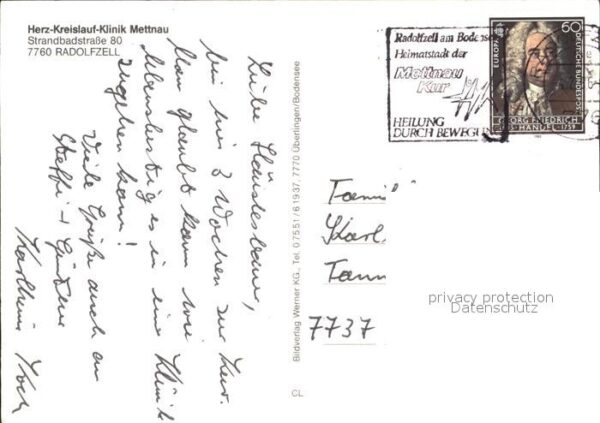 Herz-Kreislauf-Klinik Mettnau
Strandbadstraße 80
7760 RADOLFZELL
Liebe
bin in 3 Wochen zur Kur.
Man glaubt kaum wie
lebenslustig es in einer Klinik
zugehen kann!
Viele Grüße auch an
Steffi +
Bildverlag Werner KG., Tel. 0 75 51 / 6 19 37, 7770 Überlingen/Bodensee
CL
Radolfzell am Bodensee
Heimatstadt der
Mettnau
Kur
HEILUNG
DURCH BEWEGUNG
60
EUROPA
DEUTSCHE BUNDESPOST
GEORG FRIEDRICH
HÄNDEL 1759
Fami
Karl
Tann
7737
privacy protection
Datenschutz